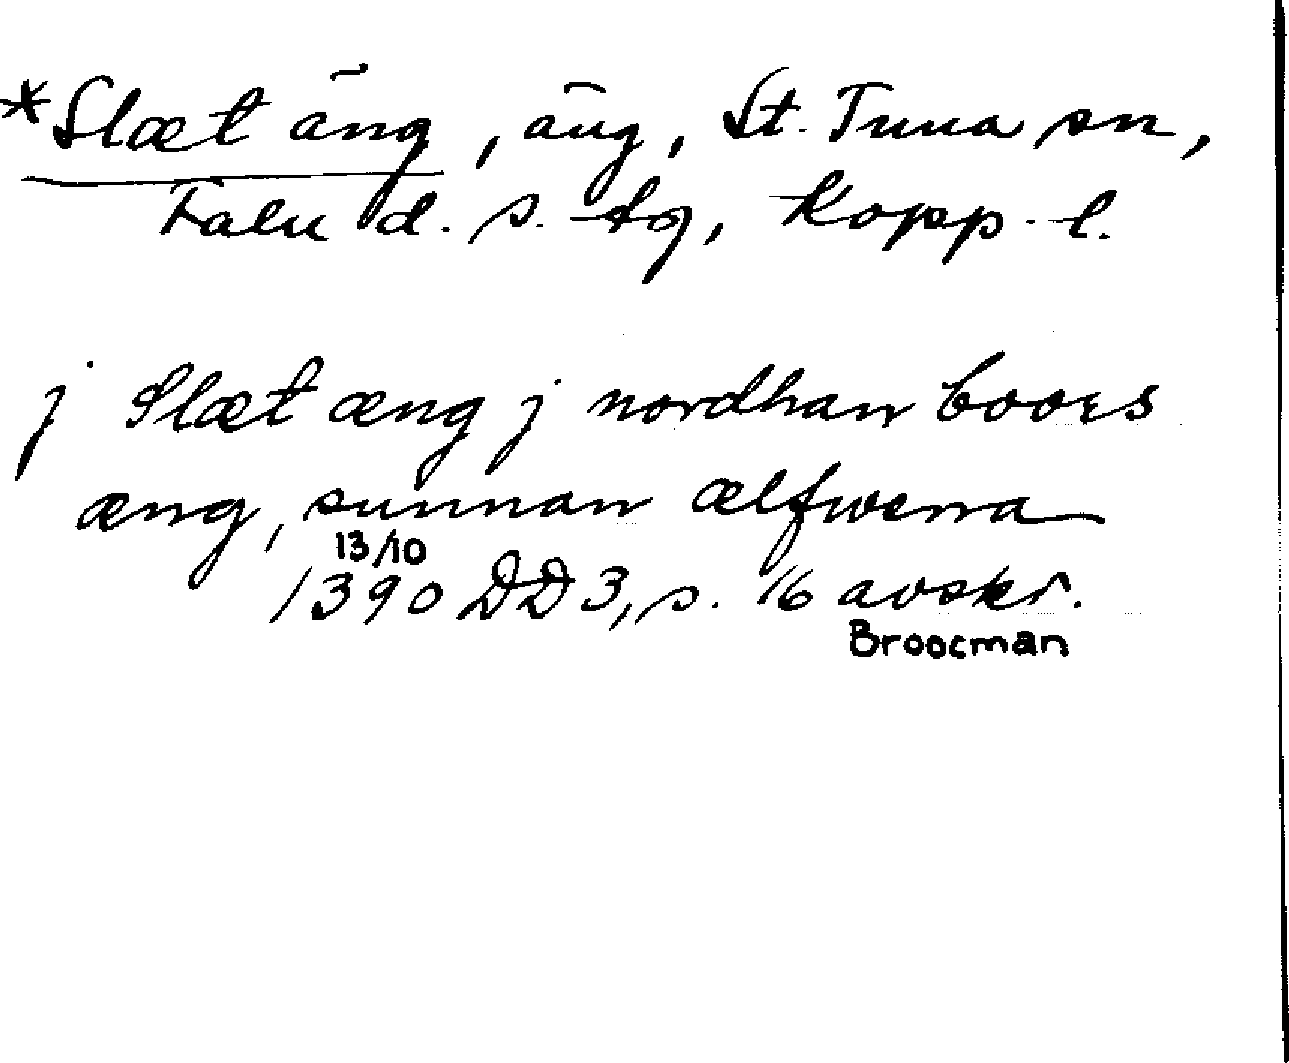 *Slæt äng, äng, St. Tuna sn,
Falu d. s. tg, Kopp. l.
j Slæt æng j nordhan boors
æng, sunnan ælfwenna
13/10
1390 DD 3, s. 16 avskr.
Broocman